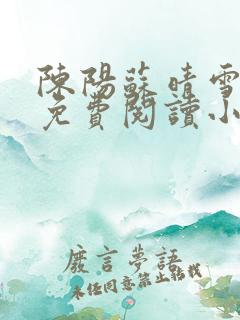 陳陽蘇晴雪
免費閱讀小
廢言夢語
未經同意禁止轉載